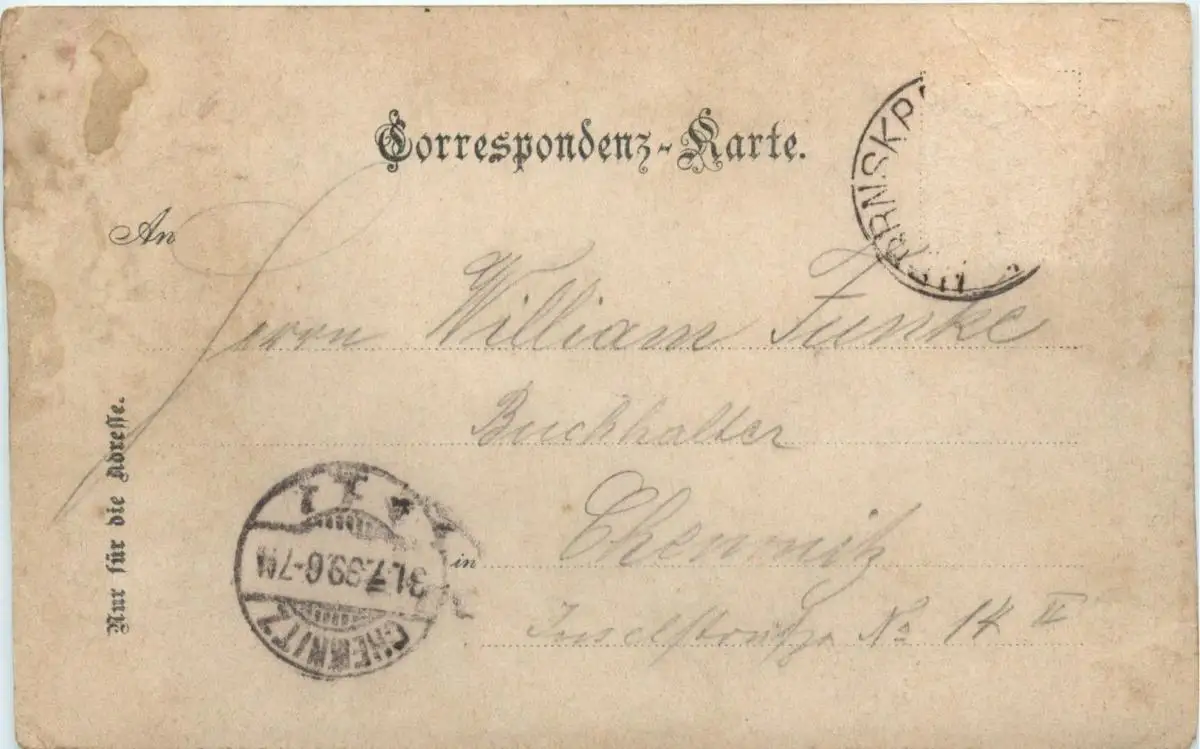 Correspondenz-Karte.
An
Herrn William Funke
Buchhalter
in Chemnitz
Inselstraße No 14 II
Nur für die Adresse.
HERRNSKR
CHEMNITZ
31.7.99.6-7N